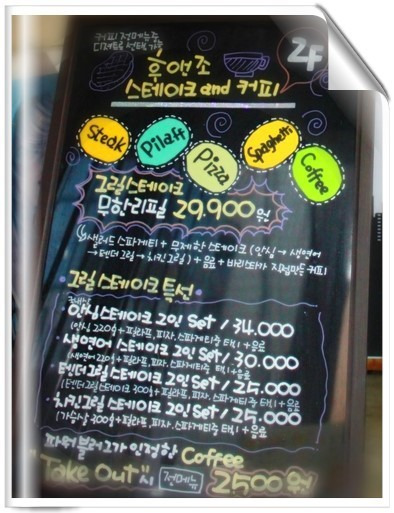 커피 전메뉴중
디저트로 선택가능
2F
후앤조
스테이크 and 커피
Steak
Pilaff
Pizza
Spaghetti
Coffee
그릴스테이크
무한리필 29.900원
샐러드 스파게티 + 무제한 스테이크 (안심 → 생연어
→ 텐더그릴 → 치킨그릴) + 음료 + 바리스타가 직접만든 커피
그릴스테이크 특선
안심스테이크 2인 Set / 34.000
(안심 220g + 필라프, 피자, 스파게티중 택1 + 음료
생연어 스테이크 2인 Set / 30.000
(생연어 220g + 필라프, 피자, 스파게티중 택1 + 음료
텐더그릴스테이크 2인 Set / 25.000
(텐더그릴스테이크 300g + 필라프, 피자, 스파게티중 택1 + 음료
치킨그릴스테이크 2인 Set / 25.000
(가슴살 300g + 필라프, 피자, 스파게티중 택1 + 음료
파워블러그가 인정한 Coffee
"Take Out"시 전메뉴 2500원